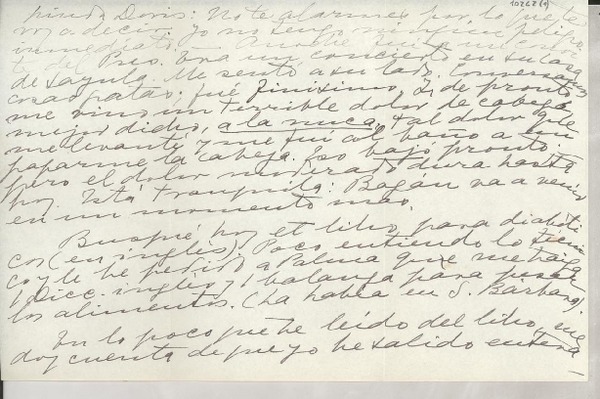 10242 (1)
Linda Doris: No te alarmes por lo que te
voy a decir. Yo no tengo ningún peligro
inmediato. Anoche fui a un concier-
to del Pseo. Era un concierto en su casa
de Sayula. Me sentó a su lado. Conversamos
cosas gratas; fue finísimo. Y, de pronto,
me vino un terrible dolor de cabeza,
mejor dicho, a la nuca; tal dolor que
me levanté y me fui al baño a em-
paparme la cabeza. Eso bajó pronto;
pero el dolor moderado dura hasta
hoy. Está tranquila: Bazán va a venir
en un momento más.
Busqué hoy el libro para diabéti
cos (en inglés). Poco entiendo lo técni
co y le he pedido a Palma que me traiga
1 Dicc. inglés y 1 balanza para pesar
los alimentos. (La había en S. Bárbara).
En lo poco que he leído del libro, me
doy cuenta de que yo he salido entera-